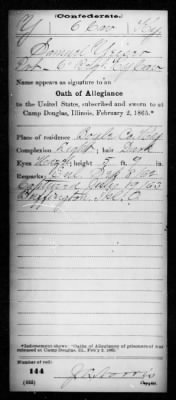 (Confederate.)
Y 6 Cav Ky.
Samuel
Pvt 6" Ky Cav
Name appears as signature to an
Oath of Allegiance
to the United States, subscribed and sworn to at
Camp Douglas, Illinois, February 2, 1865.*
Place of residence Boyle Co Ky
Complexion Light; hair Dark
Eyes Hazel; height 5 ft. 9 in.
Remarks:
Captured July 19/63
Buffington
*Indorsement shows: "Oaths of Allegiance of prisoners of war
released at Camp Douglas, Ill., Feb'y 2, 1865."
Number of roll:
144
(222) Copyist.